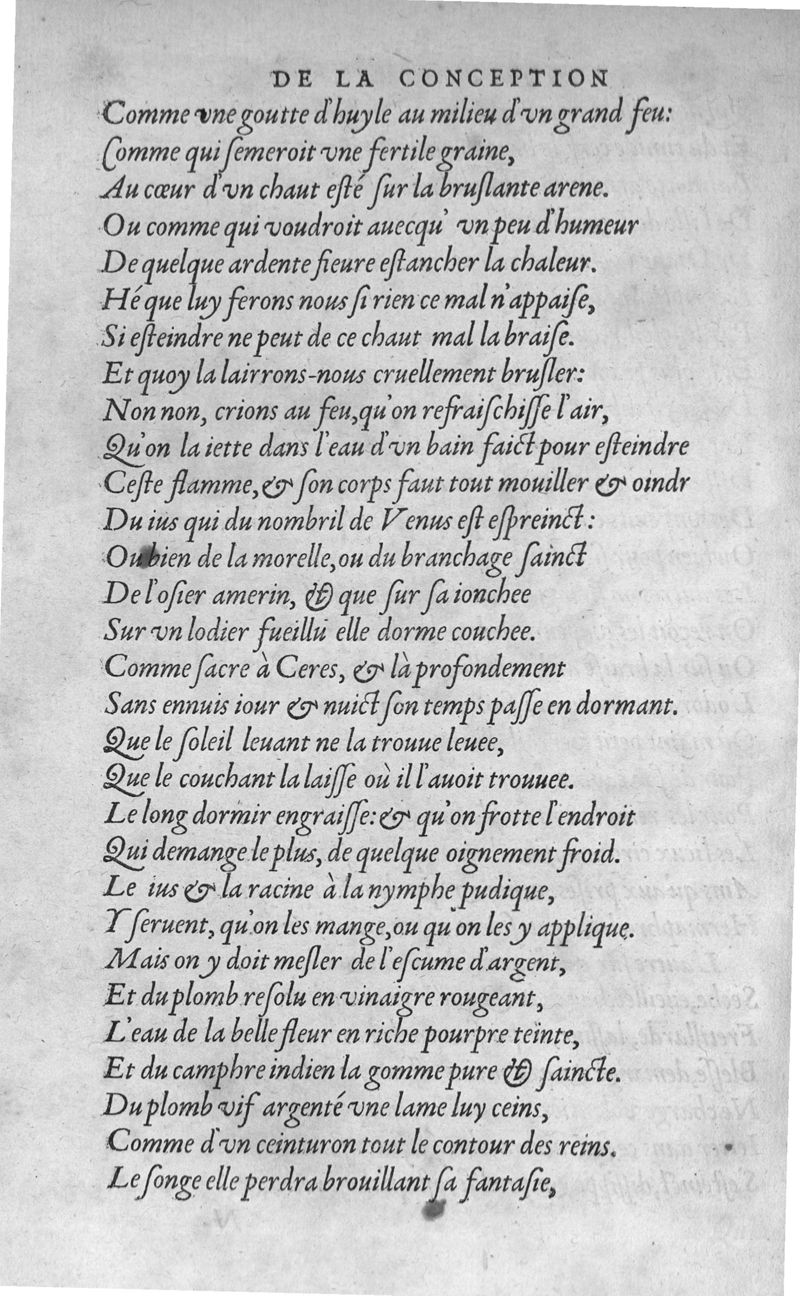 DE LA CONCEPTION
Comme vne goutte d'huyle au milieu d'vn grand feu:
Comme qui ſemeroit vne fertile graine,
Au cœur d'vn chaut eſté ſur la bruſlante arene.
Ou comme qui voudroit auecqu' vn peu d'humeur
De quelque ardente fieure eſtancher la chaleur.
Hé que luy ferons nous ſi rien ce mal n'appaiſe,
Si eſteindre ne peut de ce chaut mal la braiſe.
Et quoy la lairrons-nous cruellement bruſler:
Non non, crions au feu, qu'on refraiſchiſſe l'air,
Qu'on la iette dans l'eau d'vn bain faict pour eſteindre
Ceſte flamme, & ſon corps faut tout mouiller & oindr
Du ius qui du nombril de Venus eſt eſpreinct:
Ou bien de la morelle, ou du branchage ſainct
De l'oſier amerin, & que ſur ſa ionchee
Sur vn lodier fueillu elle dorme couchee.
Comme ſacre à Ceres, & là profondement
Sans ennuis iour & nuict ſon temps paſſe en dormant.
Que le ſoleil leuant ne la trouue leuee,
Que le couchant la laiſſe où il l'auoit trouuee.
Le long dormir engraiſſe: & qu'on frotte l'endroit
Qui demange le plus, de quelque oignement froid.
Le ius & la racine à la nymphe pudique,
Y ſeruent, qu'on les mange, ou qu'on les y applique.
Mais on y doit meſler de l'eſcume d'argent,
Et du plomb reſolu en vinaigre rougeant,
L'eau de la belle fleur en riche pourpre teinte,
Et du camphre indien la gomme pure & ſaincte.
Du plomb vif argenté vne lame luy ceins,
Comme d'vn ceinturon tout le contour des reins.
Le ſonge elle perdra brouillant ſa fantaſie,